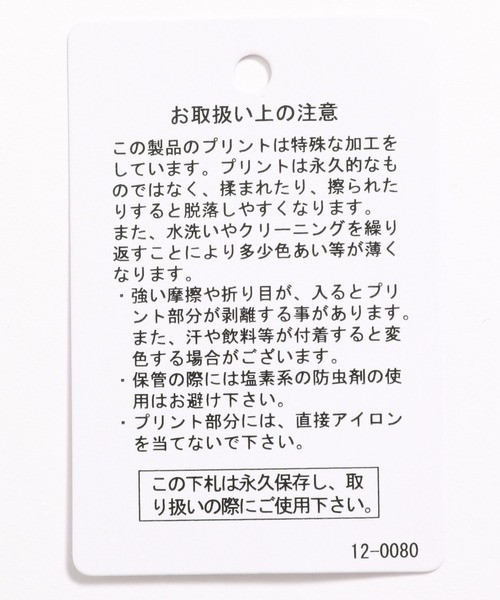 お取扱い上の注意
この製品のプリントは特殊な加工を
しています。プリントは永久的なも
のではなく、揉まれたり、擦られた
りすると脱落しやすくなります。
また、水洗いやクリーニングを繰り
返すことにより多少色あい等が薄く
なります。
・強い摩擦や折り目が、入るとプリ
ント部分が剥離する事があります。
また、汗や飲料等が付着すると変
色する場合がございます。
・保管の際には塩素系の防虫剤の使
用はお避け下さい。
・プリント部分には、直接アイロン
を当てないで下さい。
この下札は永久保存し、取
り扱いの際にご使用下さい。
12-0080